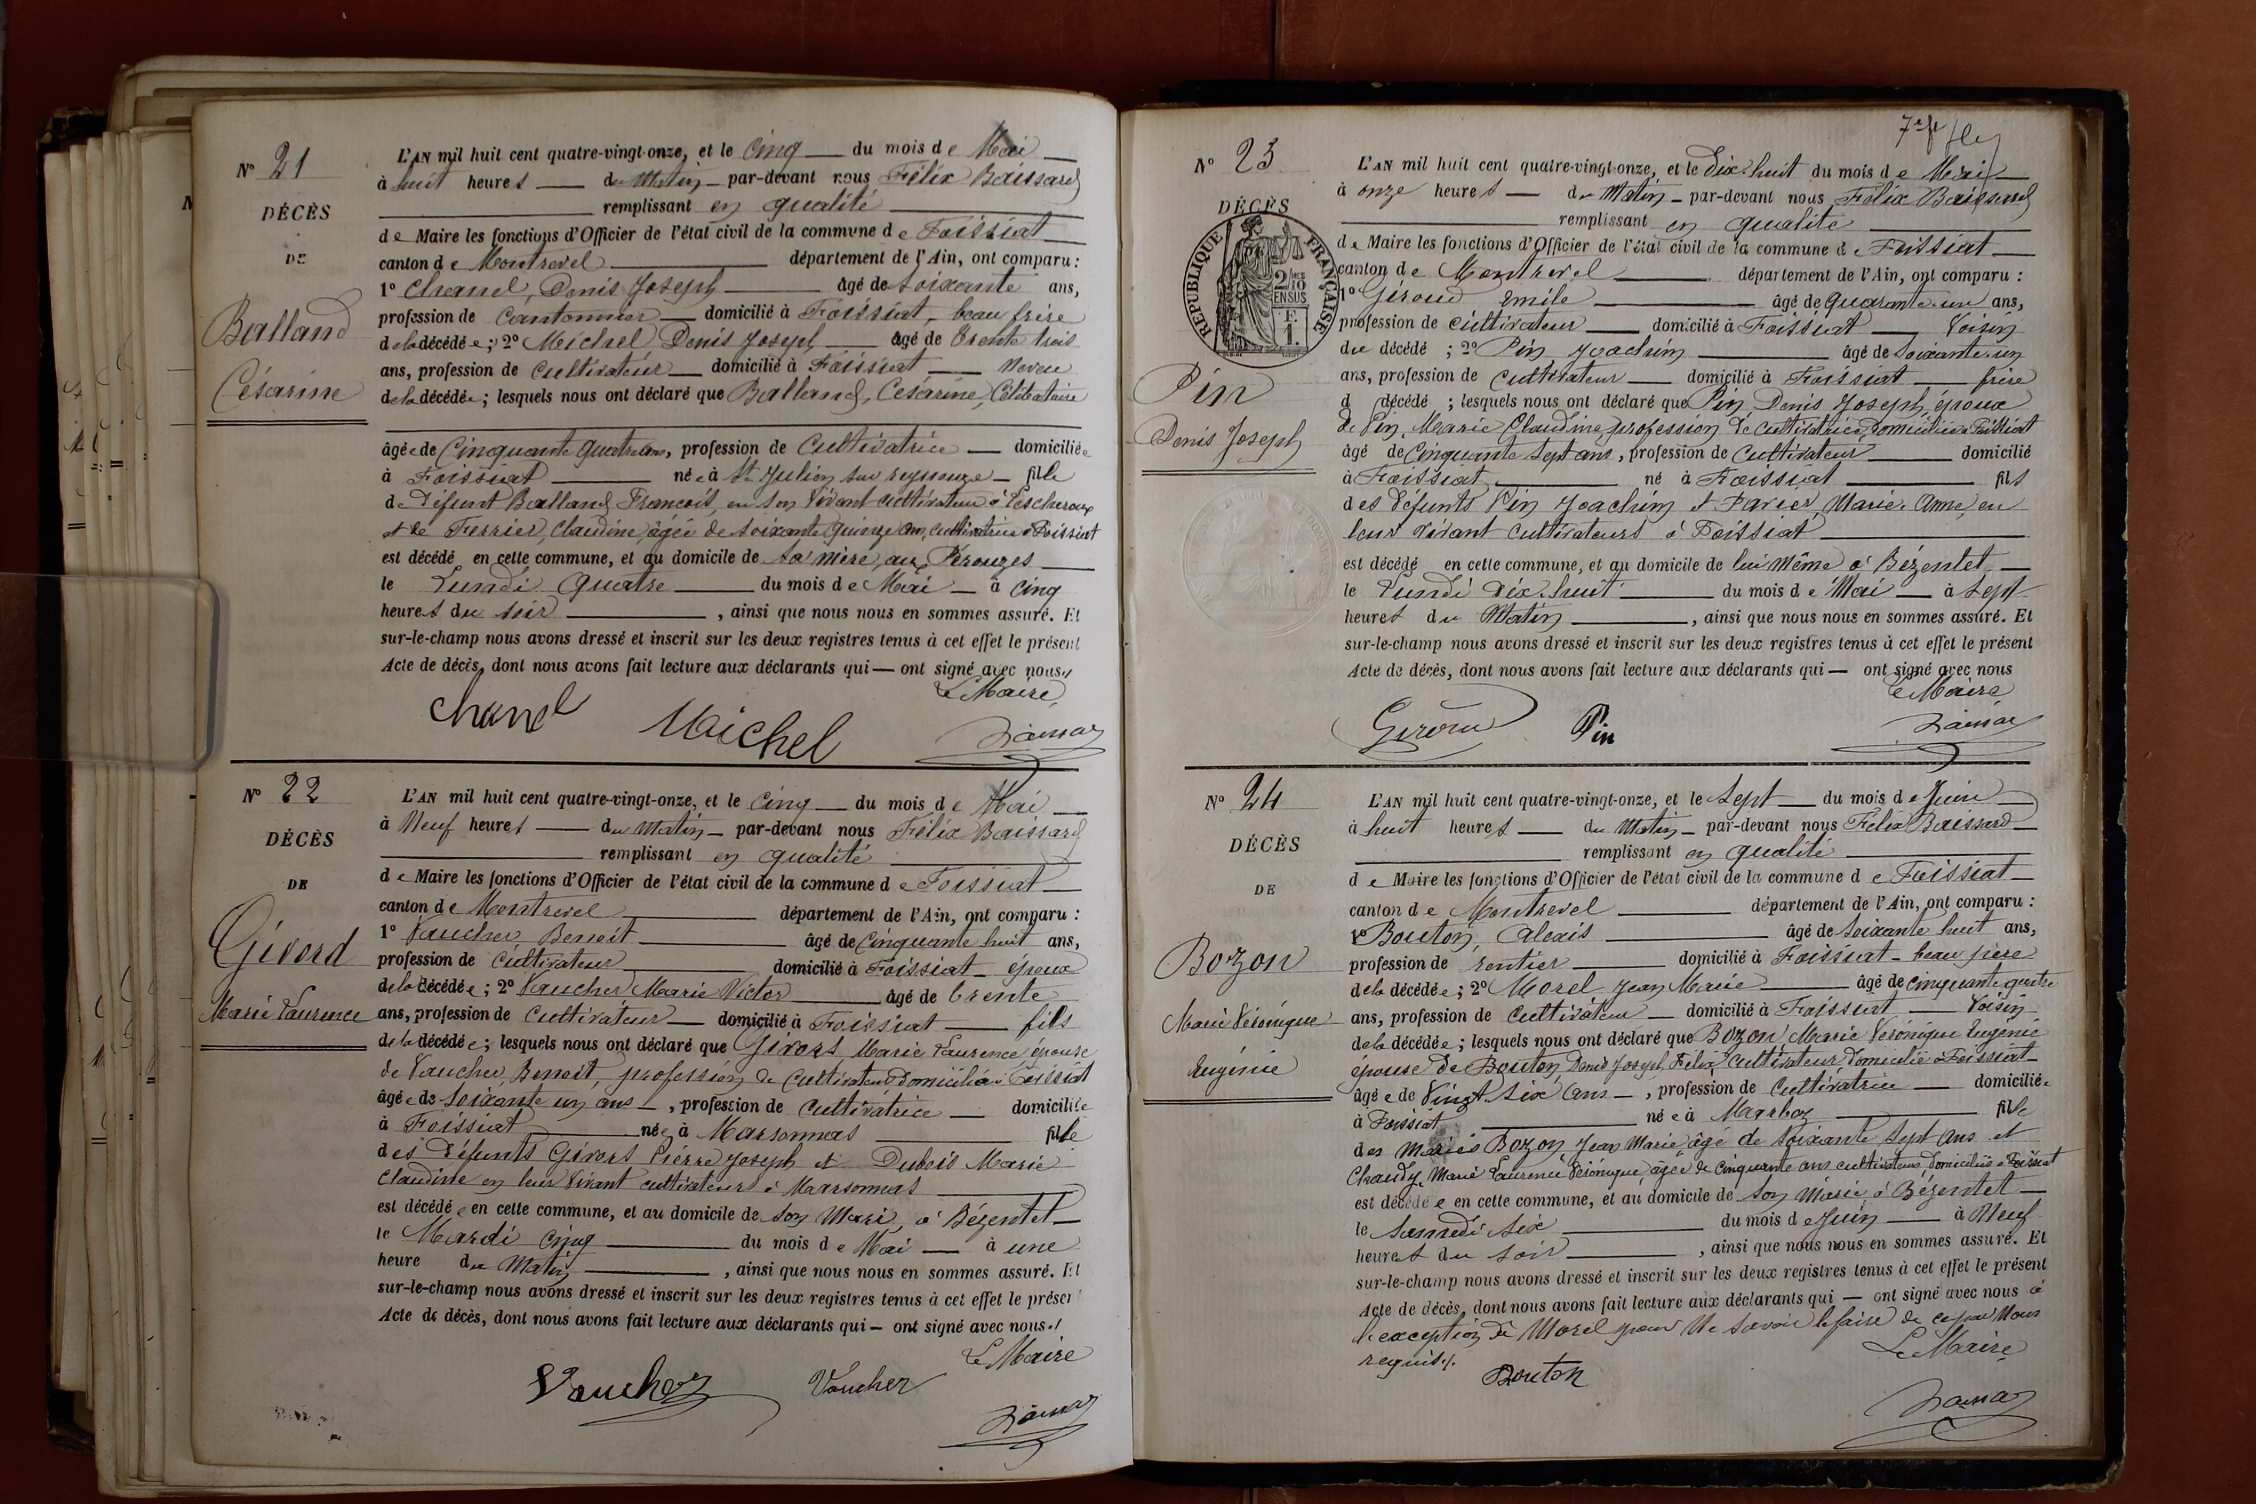 N° 21
DÉCÈS
DE
Balland
Césarine
L'AN mil huit cent quatre-vingt-onze, et le Cinq du mois de Mai
à huit heures du Matin par-devant nous Félix Baissard
remplissant en qualité
de Maire les fonctions d'Officier de l'état civil de la commune de Foissiat
canton de Montrevel département de l'Ain, ont comparu :
1° Chanel, Denis Joseph âgé de soixante ans,
profession de Cantonnier domicilié à Foissiat, beau frère
de la décédée ; 2° Michel Denis Joseph âgé de trente trois
ans, profession de Cultivateur domicilié à Foissiat Neveu
de la décédée ; lesquels nous ont déclaré que Balland, Césarine, Célibataire
âgée de Cinquante quatre ans, profession de Cultivatrice domiciliée
à Foissiat née à St Julien sur reyssouze fille
de défunt Balland François, en son Vivant cultivateur à Lescheroux
et de Ferrier, Claudine, âgée de soixante Quinze ans, cultivatrice à Foissiat
est décédé en cette commune, et au domicile de sa mère, aux Pérouzes
le Lundi Quatre du mois de Mai à Cinq
heures du soir , ainsi que nous nous en sommes assuré. Et
sur-le-champ nous avons dressé et inscrit sur les deux registres tenus à cet effet le présent
Acte de décès, dont nous avons fait lecture aux déclarants qui — ont signé avec nous
Le Maire
Chanel Michel
N° 22
DÉCÈS
DE
Givord
Marie Laurence
L'AN mil huit cent quatre-vingt-onze, et le Cinq du mois de Mai
à Neuf heures du Matin par-devant nous Félix Baissard
remplissant en qualité
de Maire les fonctions d'Officier de l'état civil de la commune de Foissiat
canton de Montrevel département de l'Ain, ont comparu :
1° Vaucher Benoit âgé de Cinquante huit ans,
profession de Cultivateur domicilié à Foissiat époux
de la décédée ; 2° Vaucher Marie Victor âgé de trente
ans, profession de Cultivateur domicilié à Foissiat fils
de la décédée ; lesquels nous ont déclaré que Givors, Marie Laurence épouse
de Vaucher, Benoit, profession de Cultivateur domicilié à Foissiat
âgée de soixante un ans , profession de Cultivatrice domiciliée
à Foissiat née à Marsonnas fille
des défunts Givors Pierre Joseph et Dubois Marie
Claudine en leur Vivant cultivateurs à Marsonnas
est décédée en cette commune, et au domicile de son Mari, à Bézentet
le Mardi Cinq du mois de Mai à une
heure du Matin , ainsi que nous nous en sommes assuré. Et
sur-le-champ nous avons dressé et inscrit sur les deux registres tenus à cet effet le présent
Acte de décès, dont nous avons fait lecture aux déclarants qui — ont signé avec nous
Le Maire
Vaucher Vaucher
7e
N° 23
DÉCÈS
RÉPUBLIQUE FRANÇAISE
2/10 EN SUS
F. 1
Pin
Denis Joseph
L'AN mil huit cent quatre-vingt-onze, et le Dix huit du mois de Mai
à onze heures du Matin par-devant nous Félix Baissard
remplissant en qualité
de Maire les fonctions d'Officier de l'état civil de la commune de Foissiat
canton de Montrevel département de l'Ain, ont comparu :
1° Giroud Emile âgé de quarante un ans,
profession de Cultivateur domicilié à Foissiat Voisin
du décédé ; 2° Pin Joachim âgé de soixante un
ans, profession de Cultivateur domicilié à Foissiat frère
d décédé ; lesquels nous ont déclaré que Pin, Denis Joseph, époux
de Pin, Marie Claudine, profession de cultivatrice, domiciliée à Foissiat
âgé de Cinquante Sept ans, profession de Cultivateur domicilié
à Foissiat né à Foissiat fils
des défunts Pin Joachim et Marie Anne, en
leur vivant cultivateurs à Foissiat
est décédé en cette commune, et au domicile de lui même à Bézentet
le Lundi dix huit du mois de Mai à Sept
heures du Matin , ainsi que nous nous en sommes assuré. Et
sur-le-champ nous avons dressé et inscrit sur les deux registres tenus à cet effet le présent
Acte de décès, dont nous avons fait lecture aux déclarants qui — ont signé avec nous
Le Maire
Giroud Pin
N° 24
DÉCÈS
DE
Bozon
Marie Véronique
Eugénie
L'AN mil huit cent quatre-vingt-onze, et le Sept du mois de Juin
à huit heures du Matin par-devant nous Félix Baissard
remplissant en qualité
de Maire les fonctions d'Officier de l'état civil de la commune de Foissiat
canton de Montrevel département de l'Ain, ont comparu :
1° Bouton, Alexis âgé de Soixante huit ans,
profession de rentier domicilié à Foissiat beau père
de la décédée ; 2° Morel Jean Marie âgé de cinquante quatre
ans, profession de Cultivateur domicilié à Foissiat Voisin
de la décédée ; lesquels nous ont déclaré que Bozon Marie Véronique Eugénie
épouse de Bouton Denis Joseph Félix Cultivateur domicilié à Foissiat
âgée de Vingt Six ans , profession de Cultivatrice domiciliée
à Foissiat née à Marboz fille
des Mariés Bozon, Jean Marie âgé de soixante Sept ans et
Chaudy, Marie Laurence Véronique, âgée de cinquante ans cultivateurs domiciliés à Foissiat
est décédée en cette commune, et au domicile de son Mari, à Bézentet
le Samedi Six du mois de Juin à Neuf
heures du soir , ainsi que nous nous en sommes assuré. Et
sur-le-champ nous avons dressé et inscrit sur les deux registres tenus à cet effet le présent
Acte de décès, dont nous avons fait lecture aux déclarants qui — ont signé avec nous à
l'exception de Morel pour Ne savoir le faire de ce par Nous
requis.
Le Maire
Bouton